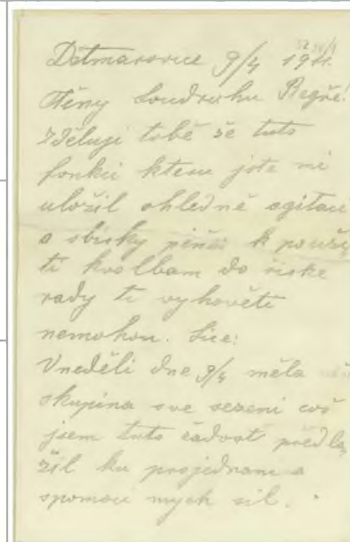 Dětmarovice 9/4 1911.
Ctěný soudruhu Regře!
Zděluji tobě že tuto
fonkci kterou jste mi
uložil ohledně agitace
a sbirky peněz k použi
ti kvolbam do řiské
rady ti vyhověti
nemohou. Sice:
Vneděli dne 9/4 měla
skupina sve sezeni což
jsem tuto žádost předlo
žil ku projednani a
spomoci mych sil.